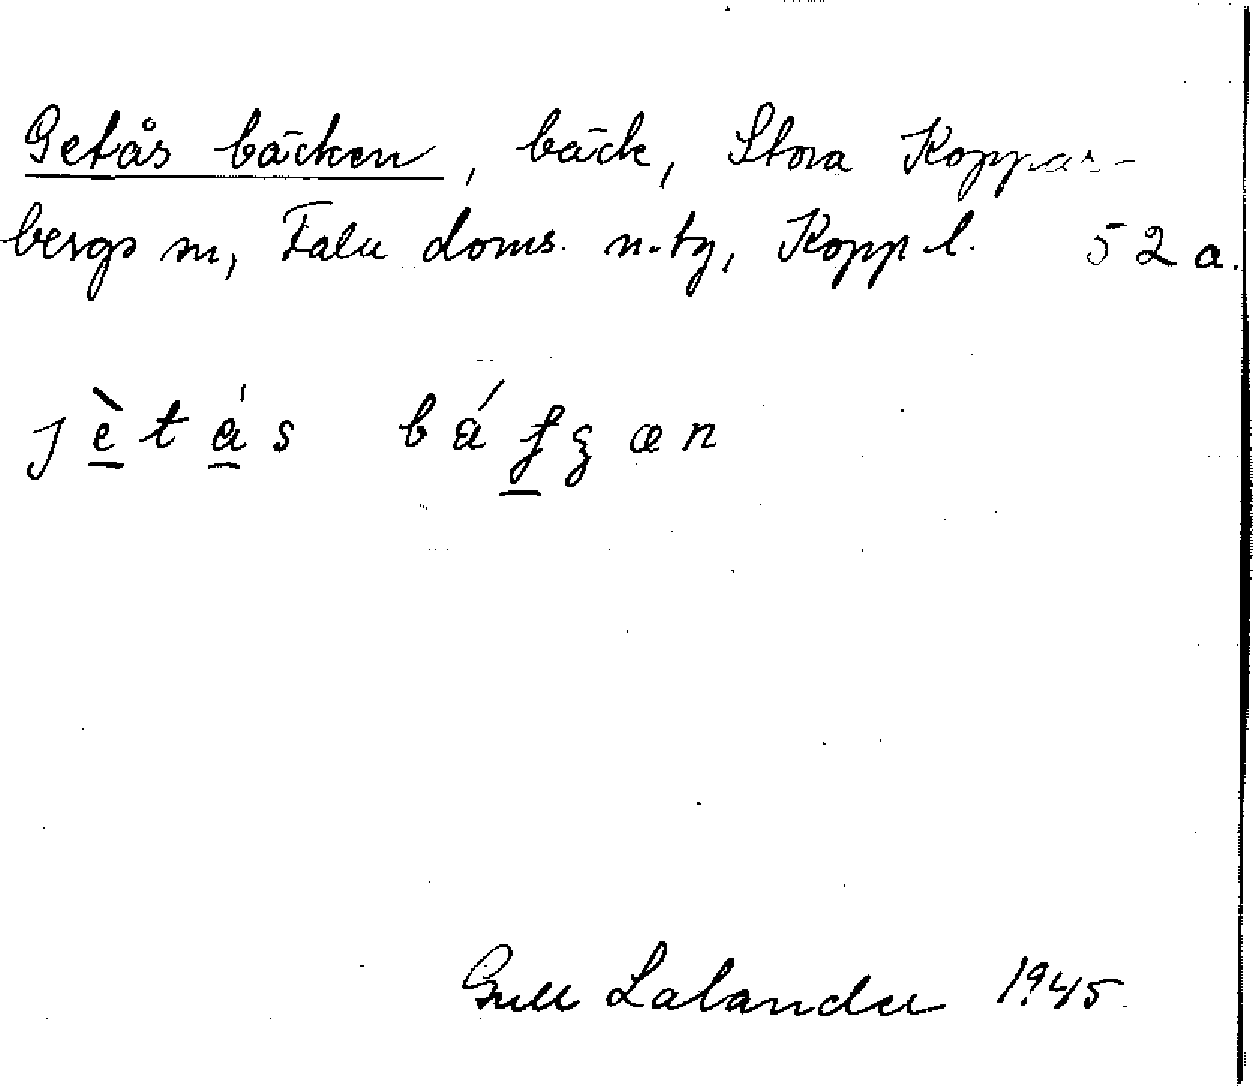 Getås bäcken, bäck, Stora Koppar-
bergs sn, Falu doms. n. tg, Kopp l. 52 a.
j è t á s b á f ʒ æ n
Gull Lalander 1945